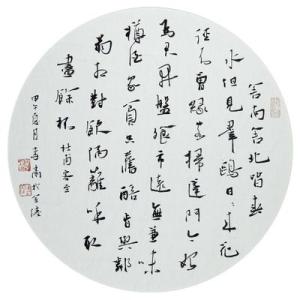 舍南舍北皆春
水但見羣鷗日日來花
徑不曾緣客掃蓬門今始
為君開盤飧市遠無兼味
樽酒家貧只舊醅肯與鄰
翁相對飲隔籬呼取
盡餘杯 杜甫客至
甲午夏月